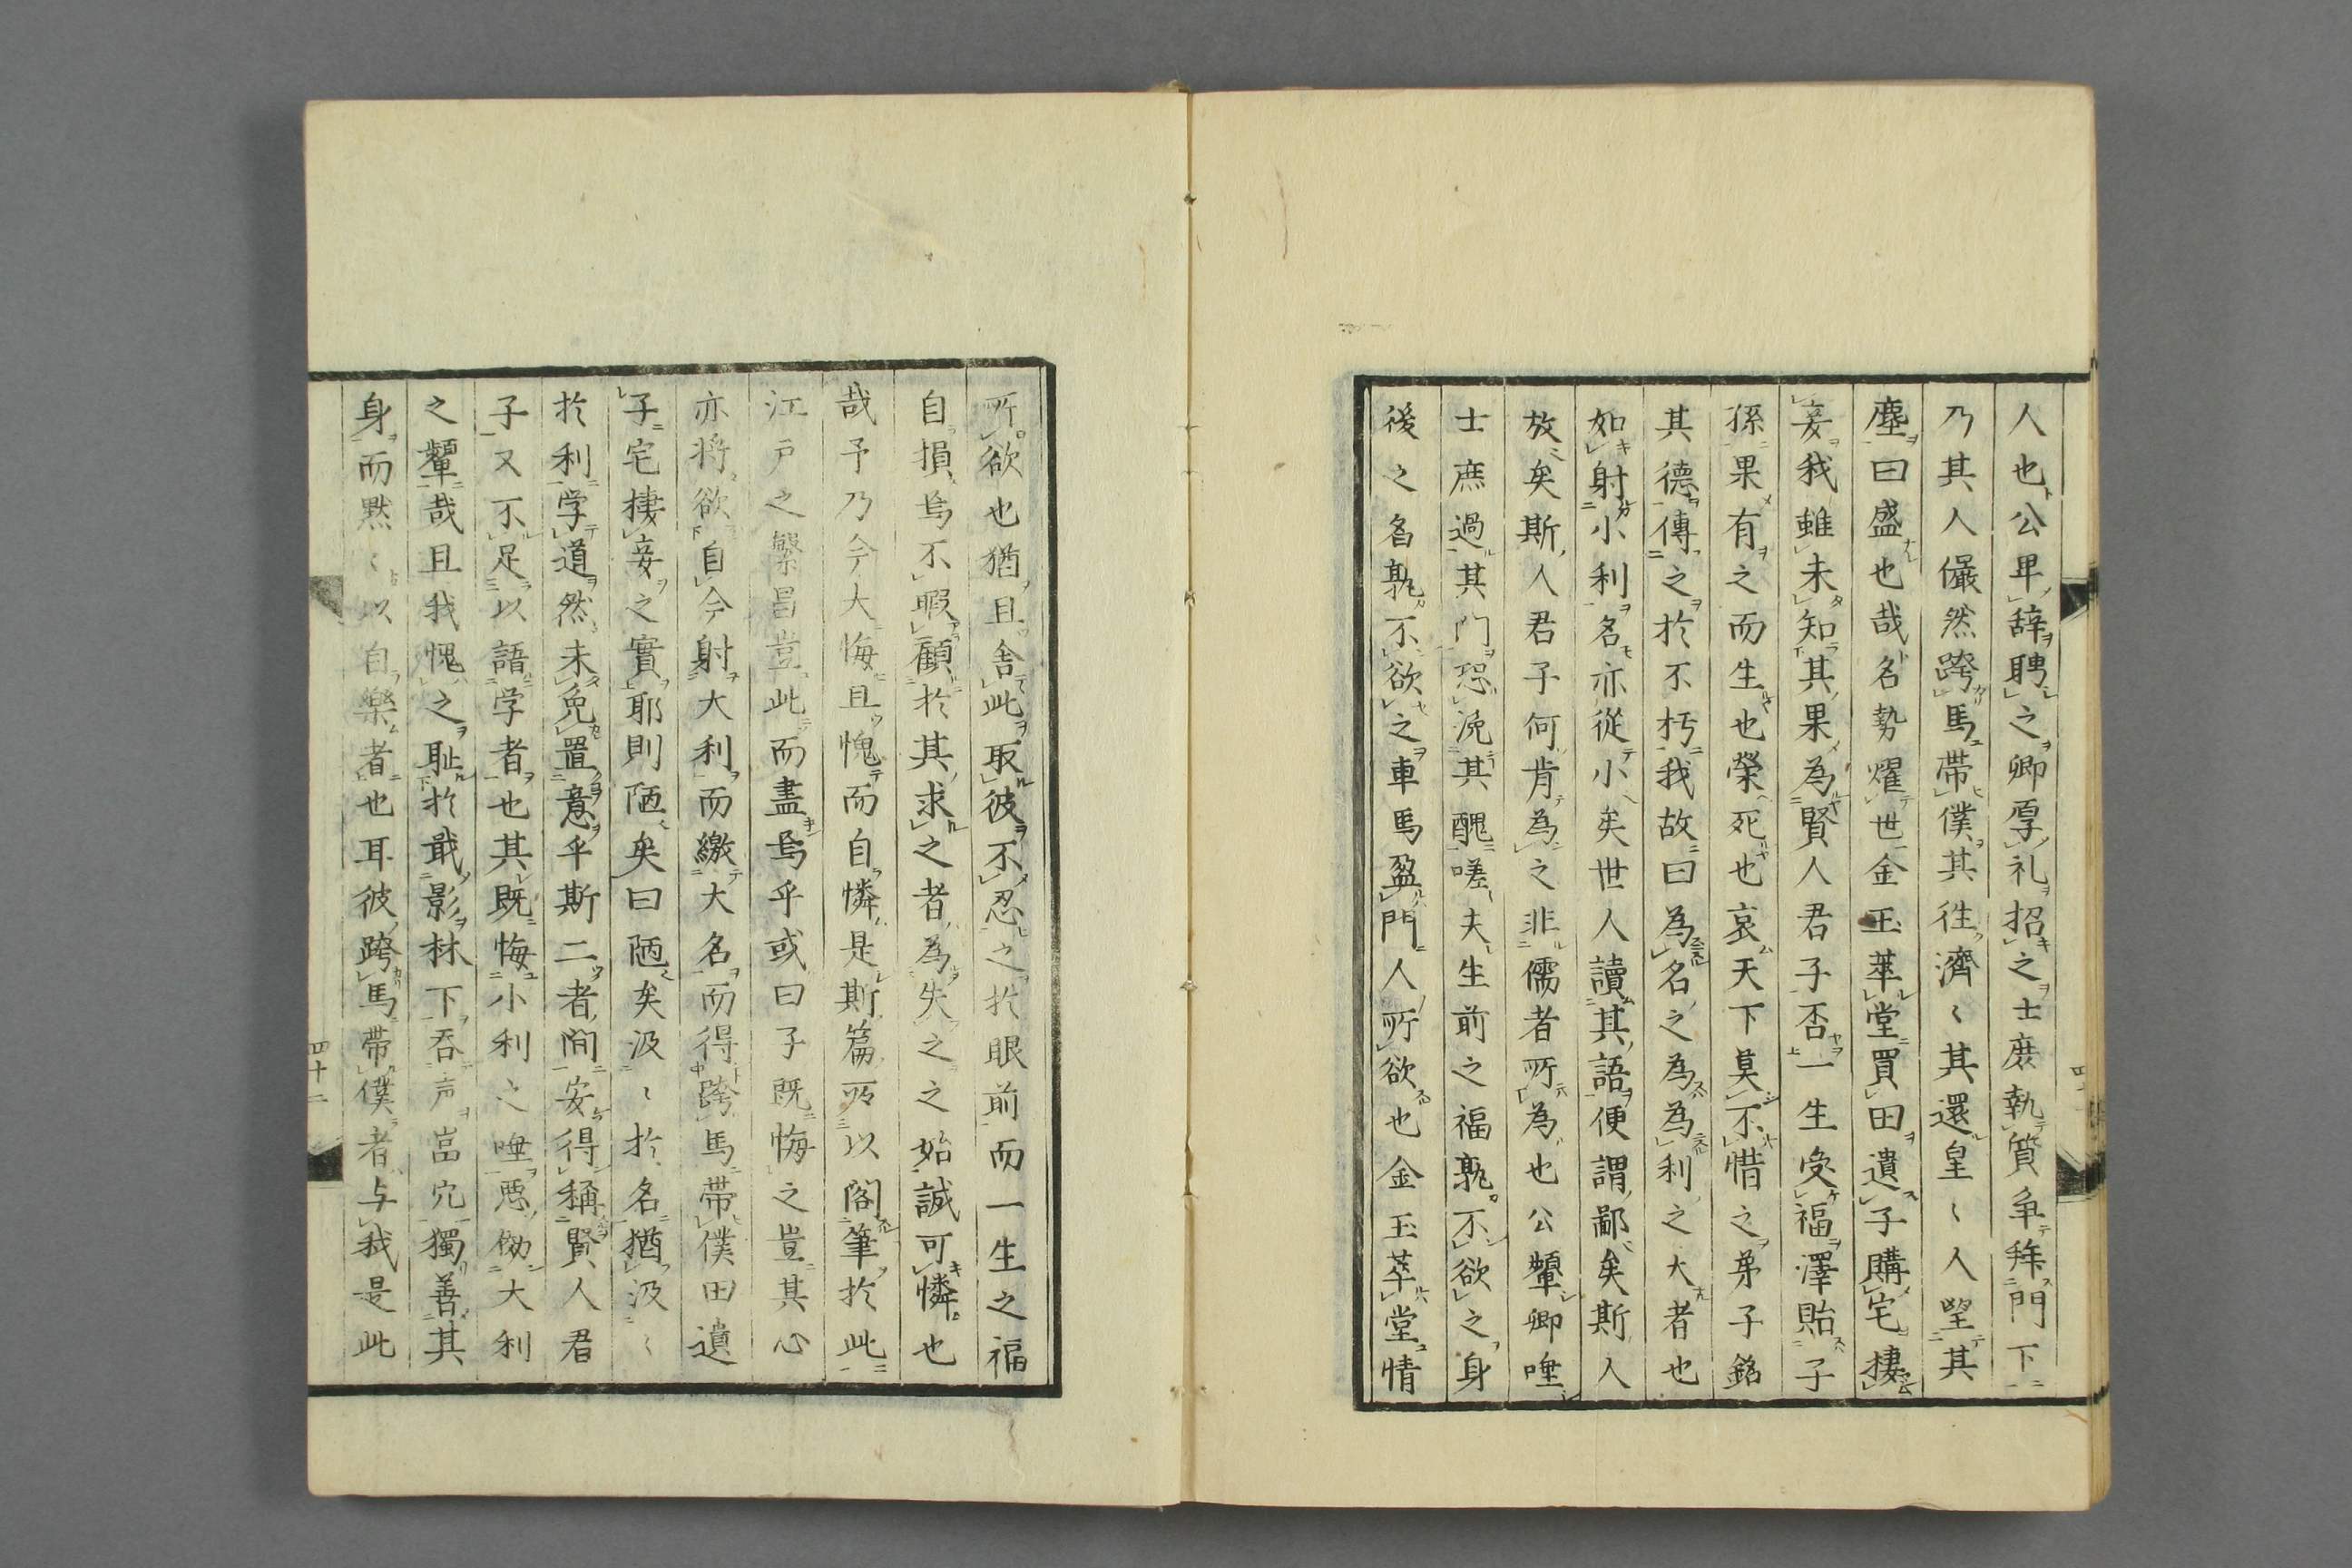 人也公卑辞聘之卿厚礼招之士庶執贄争拜門下
乃其人儼然跨馬帶僕其往濟〻其還皇〻人望其
塵曰盛也哉名勢燿世金玉萃堂買田遺子購宅棲
妾我雖未知其果為賢人君子否一生受福澤貽子
孫果有之而生也榮死也哀天下莫不惜之弟子銘
其德傳之於不朽我故曰為名之為為利之大者也
如射小利名亦從小矣世人讀其語便謂鄙矣斯人
放矣斯人君子何肯為之非儒者所為也公顰卿唾
士庶過其門恐浼其醜嗟夫生前之福孰不欲之身
後之名孰不欲之車馬盈門人所欲也金玉萃堂情
所欲也猶且舍此取彼不忍之於眼前而一生之福
自損焉不暇顧於其求之者為失之之始誠可憐也
哉予乃今大悔且愧而自憐是斯篇所以閣筆於此
江戸之繁昌豈此而盡焉乎或曰子既悔之豈其心
亦将欲自今射大利而繳大名而得跨馬帶僕田遺
子宅棲妾之實耶則陋矣曰陋矣汲〻於名猶汲〻
於利学道然未免置意乎斯二者間安得稱賢人君
子又不足以語学者也其既悔小利之唾悪傚大利
之顰哉且我愧之耻於戢影林下呑声嵓穴獨善其
身而黙〻以自樂者也耳彼跨馬帶僕者与我是此
四十二